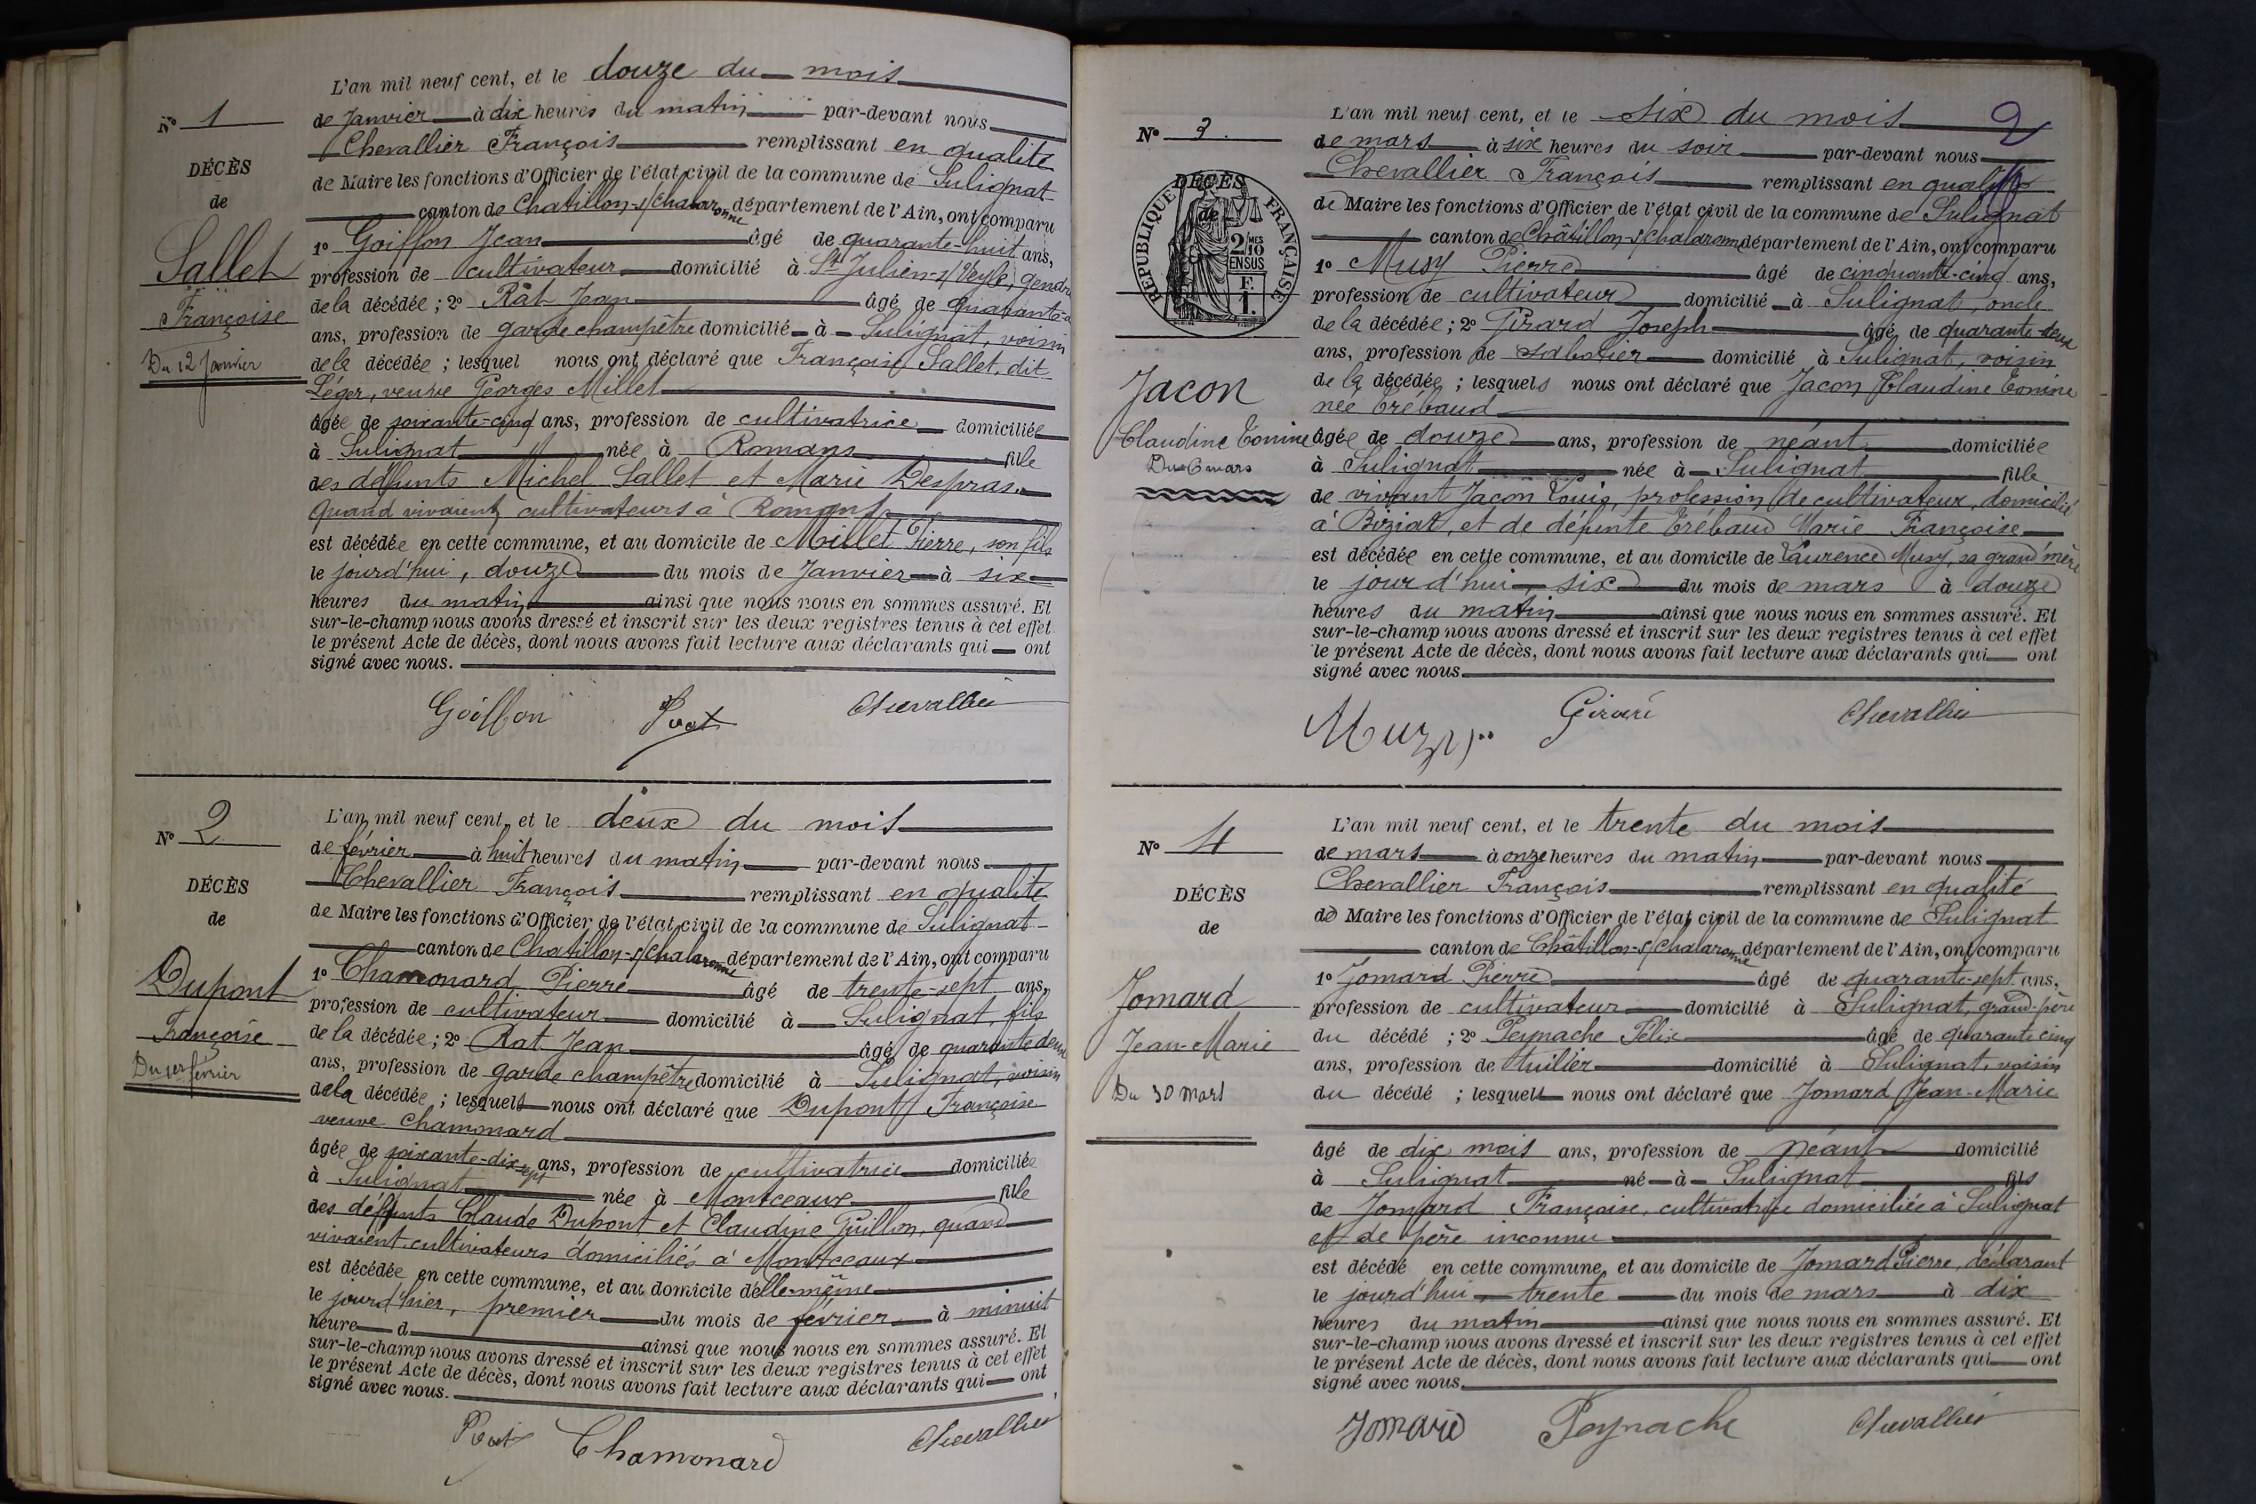 L'an mil neuf cent, et le douze du mois
N° 1
de Janvier à dix heures du matin par-devant nous
Chevallier François remplissant en qualité
DÉCÈS
de Maire les fonctions d'Officier de l'état civil de la commune de Sulignat
de
canton de Chatillon-s/Chalaronne département de l'Ain, ont comparu
1° Goiffon Jean âgé de quarante-huit ans,
Sallet
profession de cultivateur domicilié à St Julien-s/Veyle, gendre
de la décédée ; 2° Rat Jean âgé de quarante-
Françoise
ans, profession de garde champêtre domicilié à Sulignat, voisin
Du 12 Janvier
de la décédée ; lesquel nous ont déclaré que Françoise Sallet, dit
Léger, veuve Georges Millet
âgée de soixante-cinq ans, profession de cultivatrice domiciliée
à Sulignat née à Romans fille
des défunts Michel Sallet et Marie Despras
quand vivaient cultivateurs à Romans
est décédée en cette commune, et au domicile de Millet Pierre, son fils
le jourd'hui, douze du mois de Janvier à six
heures du matin ainsi que nous nous en sommes assuré. Et
sur-le-champ nous avons dressé et inscrit sur les deux registres tenus à cet effet
le présent Acte de décès, dont nous avons fait lecture aux déclarants qui ont
signé avec nous.
Goiffon Rat Chevallier
L'an mil neuf cent, et le deux du mois
N° 2
de février à huit heures du matin par-devant nous
Chevallier François remplissant en qualité
DÉCÈS
de Maire les fonctions d'Officier de l'état civil de la commune de Sulignat
de
canton de Chatillon-s/Chalaronne département de l'Ain, ont comparu
1° Chamonard Pierre âgé de trente-sept ans,
Dupont
profession de cultivateur domicilié à Sulignat, fils
Françoise
de la décédée ; 2° Rat Jean âgé de quarante deux
Du 1er février
ans, profession de garde champêtre domicilié à Sulignat, voisin
de la décédée ; lesquels nous ont déclaré que Dupont Françoise
veuve Chamonard
âgée de soixante-dix-sept ans, profession de cultivatrice domiciliée
à Sulignat née à Montceaux fille
des défunts Claude Dupont et Claudine Guillon, quand
vivaient cultivateurs domiciliés à Montceaux
est décédée en cette commune, et au domicile d'elle-même
le jourd'hier, premier du mois de février à minuit
heure d ainsi que nous nous en sommes assuré. Et
sur-le-champ nous avons dressé et inscrit sur les deux registres tenus à cet effet
le présent Acte de décès, dont nous avons fait lecture aux déclarants qui ont
signé avec nous.
Rat Chamonard Chevallier
2
L'an mil neuf cent, et le six du mois
N° 3.
de mars à six heures du soir par-devant nous
Chevallier François remplissant en qualité
DÉCÈS
de
RÉPUBLIQUE FRANÇAISE
2/10 MES EN SUS
F. 1.
de Maire les fonctions d'Officier de l'état civil de la commune de Sulignat
canton de Châtillon-s/Chalaronne département de l'Ain, ont comparu
1° Musy Pierre âgé de cinquante-cinq ans,
profession de cultivateur domicilié à Sulignat, oncle
de la décédée ; 2° Girard Joseph âgé de quarante-deux
ans, profession de sabotier domicilié à Sulignat, voisin
Jacon
de la décédée ; lesquels nous ont déclaré que Jacon Claudine Tonine
née Trébaud
Claudine Tonine
âgée de douze ans, profession de néant domiciliée
Du 6 mars
à Sulignat née à Sulignat fille
de vivant Jacon Louis, profession de cultivateur, domicilié
à Biziat, et de défunte Trébaud Marie Françoise
est décédée en cette commune, et au domicile de Laurence Musy, sa grand'mère
le jourd'hui, six du mois de mars à douze
heures du matin ainsi que nous nous en sommes assuré. Et
sur-le-champ nous avons dressé et inscrit sur les deux registres tenus à cet effet
le présent Acte de décès, dont nous avons fait lecture aux déclarants qui ont
signé avec nous
Muzy Girard Chevallier
L'an mil neuf cent, et le trente du mois
N° 4
de mars à onze heures du matin par-devant nous
Chevallier François remplissant en qualité
DÉCÈS
de Maire les fonctions d'Officier de l'état civil de la commune de Sulignat
de
canton de Châtillon-s/Chalaronne département de l'Ain, ont comparu
1° Jomard Pierre âgé de quarante-sept ans,
Jomard
profession de cultivateur domicilié à Sulignat, grand-père
Jean-Marie
du décédé ; 2° Peynache Félix âgé de quarante cinq
ans, profession de tuilier domicilié à Sulignat, voisin
Du 30 mars
du décédé ; lesquels nous ont déclaré que Jomard Jean-Marie
âgé de dix mois ans, profession de néant domicilié
à Sulignat né à Sulignat fils
de Jomard Françoise, cultivatrice domiciliée à Sulignat
et de père inconnu
est décédé en cette commune, et au domicile de Jomard Pierre, déclarant
le jourd'hui trente du mois de mars à dix
heures du matin ainsi que nous nous en sommes assuré. Et
sur-le-champ nous avons dressé et inscrit sur les deux registres tenus à cet effet
le présent Acte de décès, dont nous avons fait lecture aux déclarants qui ont
signé avec nous.
Jomard Peynache Chevallier